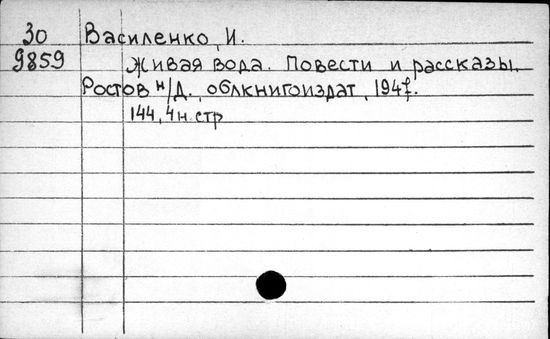 30 Василенко, И.
9859 Живая вода. Повести и рассказы.
Ростов н/Д., облкнигоиздат, 1947.
144, 4 н. стр